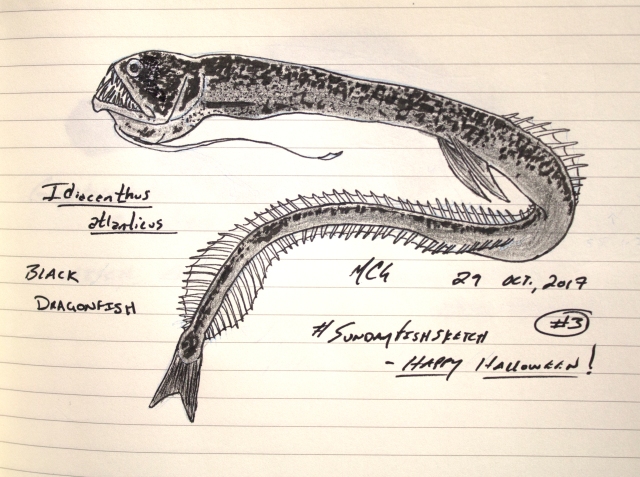 Idiacanthus
atlanticus
BLACK
DRAGONFISH
MCG 29 OCT., 2017
#3
#SUNDAYFISHSKETCH
- HAPPY HALLOWEEN!